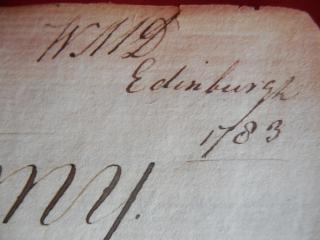 WMD
Edinburgh
1783
my.